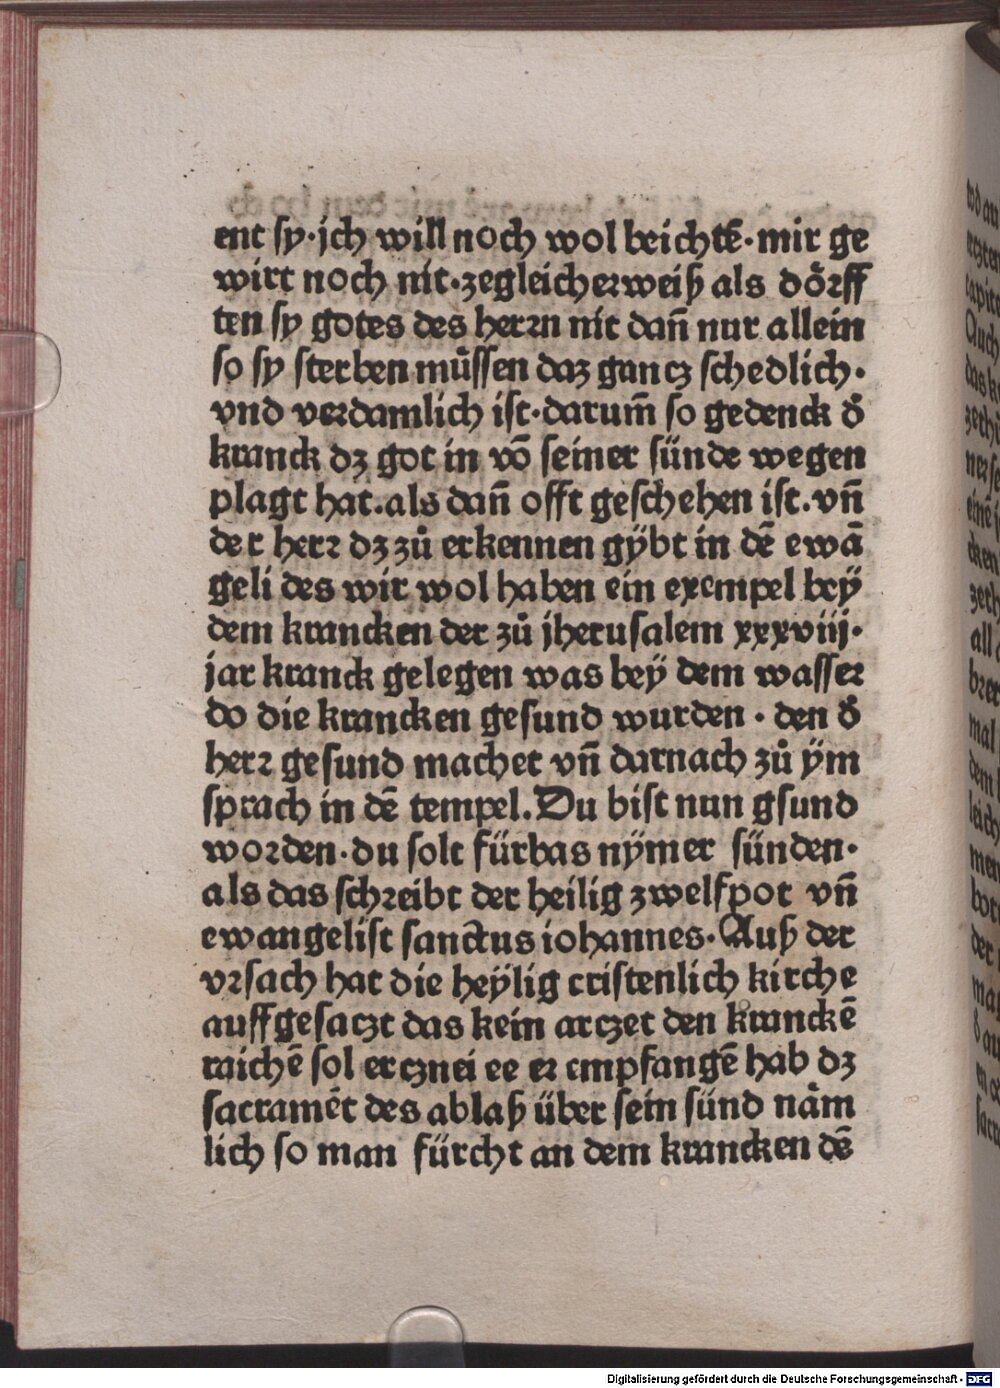 ent sy·jch will noch wol beichtē·mir ge
wirt noch nit·zegleicherweiß als dörff
ten sy gotes des herrn nit dañ nur allein
so sy sterben müssen daz gancz schedlich·
vnd verdamlich ist·darum̄ so gedenck d̓
kranck dz got in vō seiner sünde wegen
plagt hat.als dañ offt geschehen ist.vñ
der herr dz zů erkennen gÿbt in dē ewā
geli des wir wol haben ein exempel beÿ
dem krancken der zů jherusalem xxxviij·
jar kranck gelegen was beÿ dem wasser
do die krancken gesund wurden · den d̓
herr gesund machet vñ darnach zů ÿm
sprach in dē tempel.Du bist nun gsund
worden·du solt fürbas nÿmer sünden·
als das schreibt der heilig zwelfpot vñ
ewangelist sanctus iohannes·Auß der
vrsach hat die heÿlig cristenlich kirche
auffgesaczt das kein arczet den kranckē
raichē sol ercznei ee er empfangē hab dz
sacramēt des ablaß über sein sünd näm
lich so man fürcht an dem krancken dē
Digitalisierung gefördert durch die Deutsche Forschungsgemeinschaft · DFG